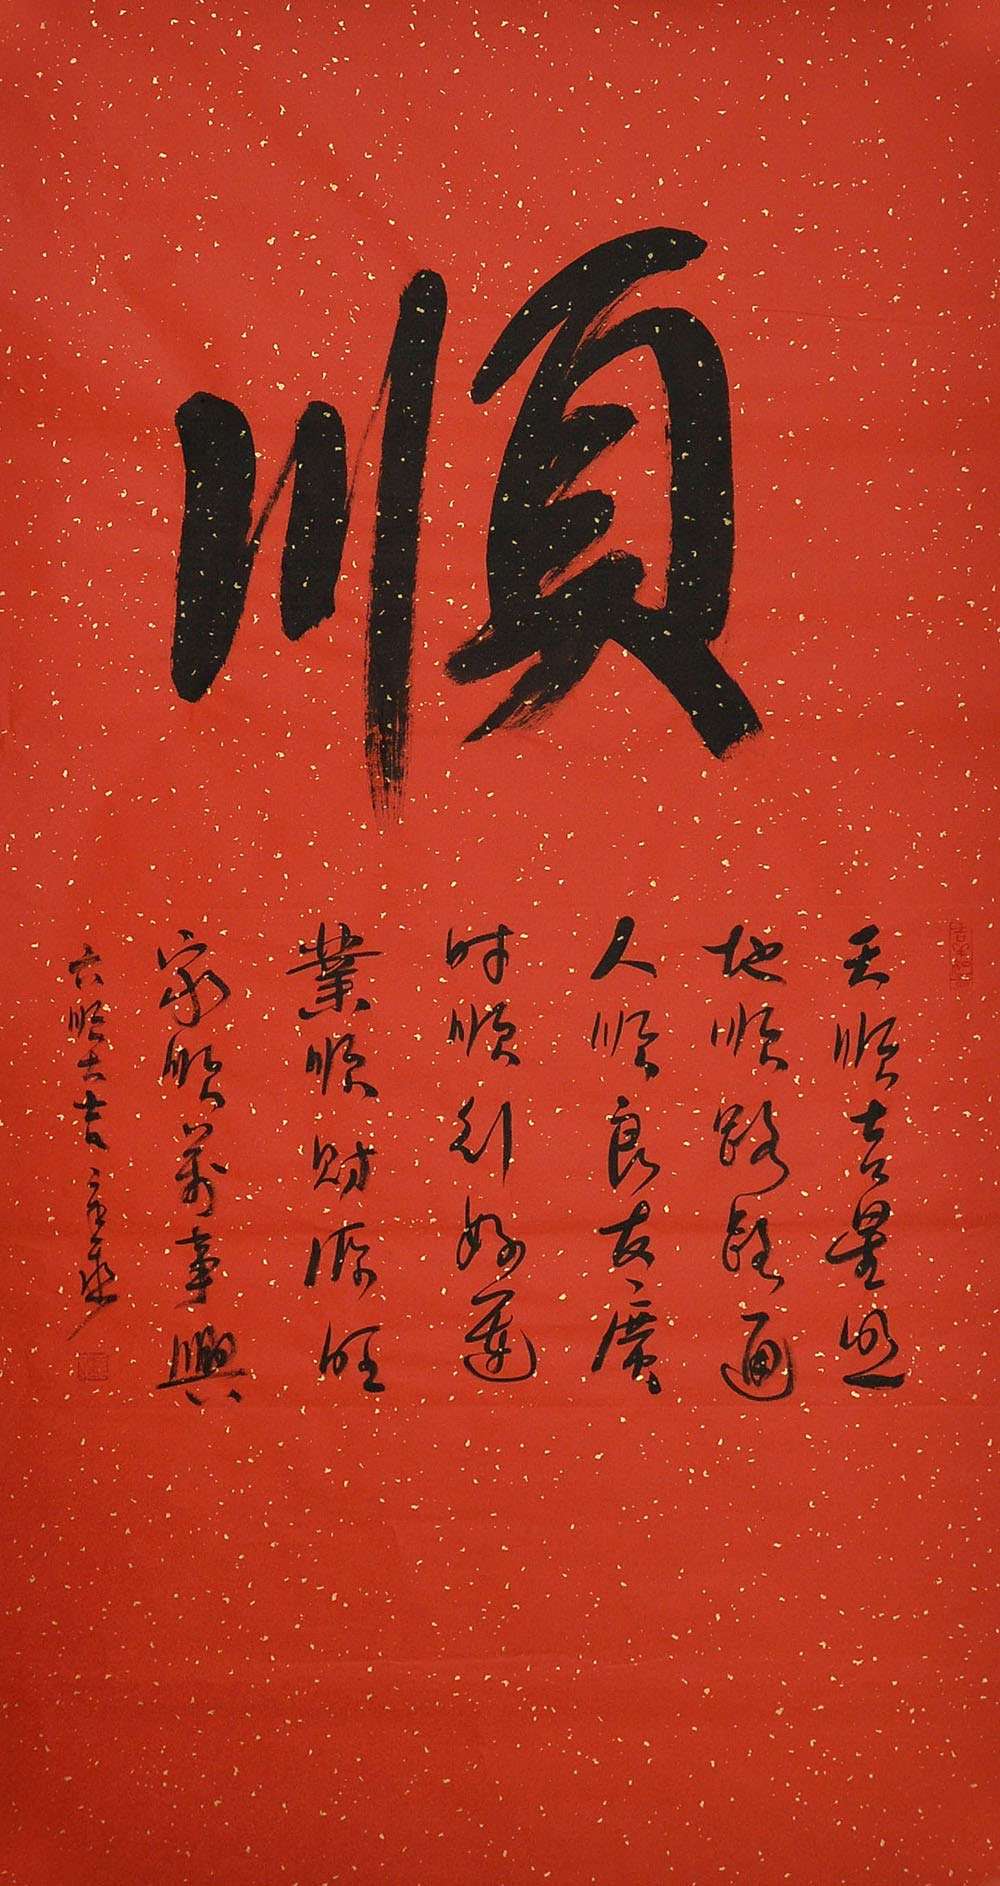 順
天順吉星照
地順路路通
人順良友廣
时順到好運
業順财源旺
家順萬事興
六順大吉